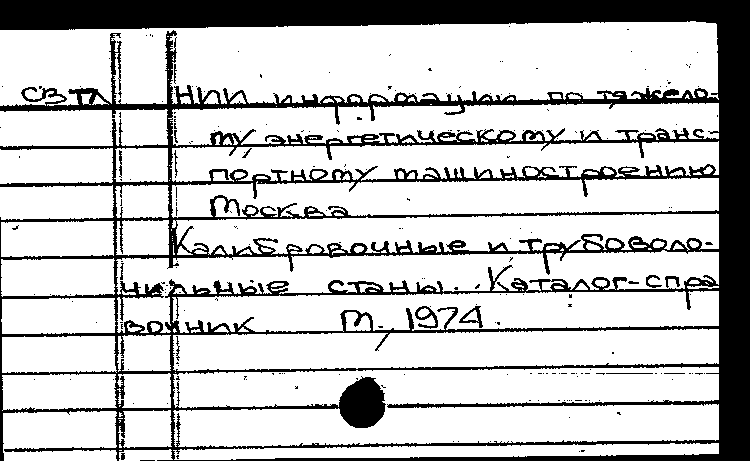 СВТЛ НИИ информации по тяжело-
му, энергетическому и транс-
портному машиностроению
Москва
Калибровочные и трубоволо-
чильные станы. Каталог-спра
вочник. М., 1974.